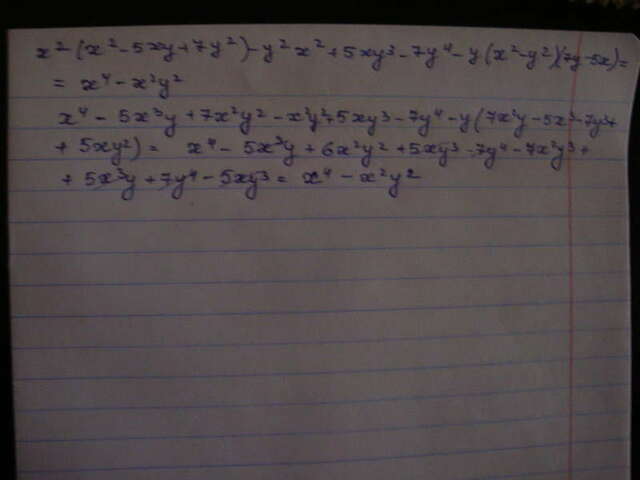 x²(x²-5xy+7y²)-y²x²+5xy³-7y⁴-y(x²-y²)(7y-5x)=
= x⁴-x²y²
x⁴-5x³y+7x²y²-x²y²+5xy³-7y⁴-y(7x²y-5x³-7y³+
+5xy²)= x⁴-5x³y+6x²y²+5xy³-7y⁴-7x²y³+
+5x³y+7y⁴-5xy³= x⁴-x²y²